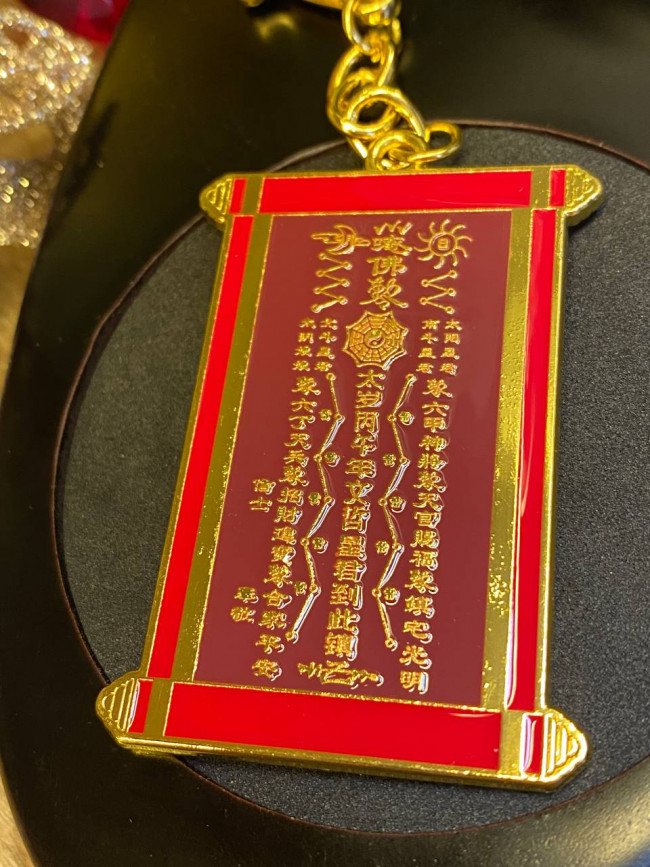 日
佛敕
太陽星君
南斗星君
奉六甲神將奉天官賜福奉鎮宅光明
太岁丙午年文哲星君到此鎮
北斗星君
奉六丁天兵奉招財進寶奉合家平安
信士
奉敬